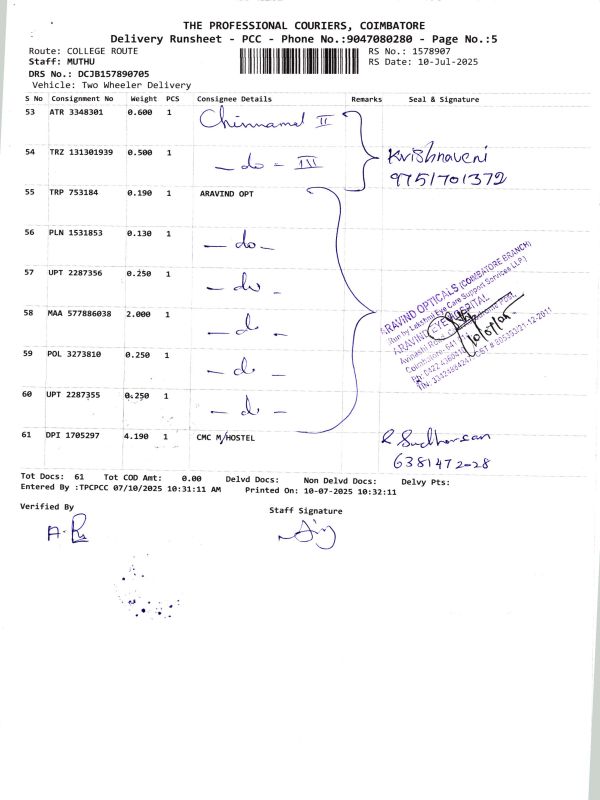 THE PROFESSIONAL COURIERS, COIMBATORE
Delivery Runsheet - PCC - Phone No.:9047080280 - Page No.:5
Route: COLLEGE ROUTE RS No.: 1578907
Staff: MUTHU RS Date: 10-Jul-2025
DRS No.: DCJB157890705
Vehicle: Two Wheeler Delivery
S No Consignment No Weight PCS Consignee Details Remarks Seal & Signature
53 ATR 3348301 0.600 1 Chinnamal II
54 TRZ 131301939 0.500 1 - do - III Krishnaveni
9751701372
55 TRP 753184 0.190 1 ARAVIND OPT
56 PLN 1531853 0.130 1 - do -
57 UPT 2287356 0.250 1 - do -
58 MAA 577886038 2.000 1 - do -
59 POL 3273810 0.250 1 - do -
60 UPT 2287355 0.250 1 - do -
ARAVIND OPTICALS (COIMBATORE BRANCH)
Run by Lakshmi Eye Care Support Services LLP)
ARAVIND EYE HOSPITAL
61 DPI 1705297 4.190 1 CMC M/HOSTEL R Sudharsan
6381472228
Tot Docs: 61 Tot COD Amt: 0.00 Delvd Docs: Non Delvd Docs: Delvy Pts:
Entered By :TPCPCC 07/10/2025 10:31:11 AM Printed On: 10-07-2025 10:32:11
Verified By Staff Signature